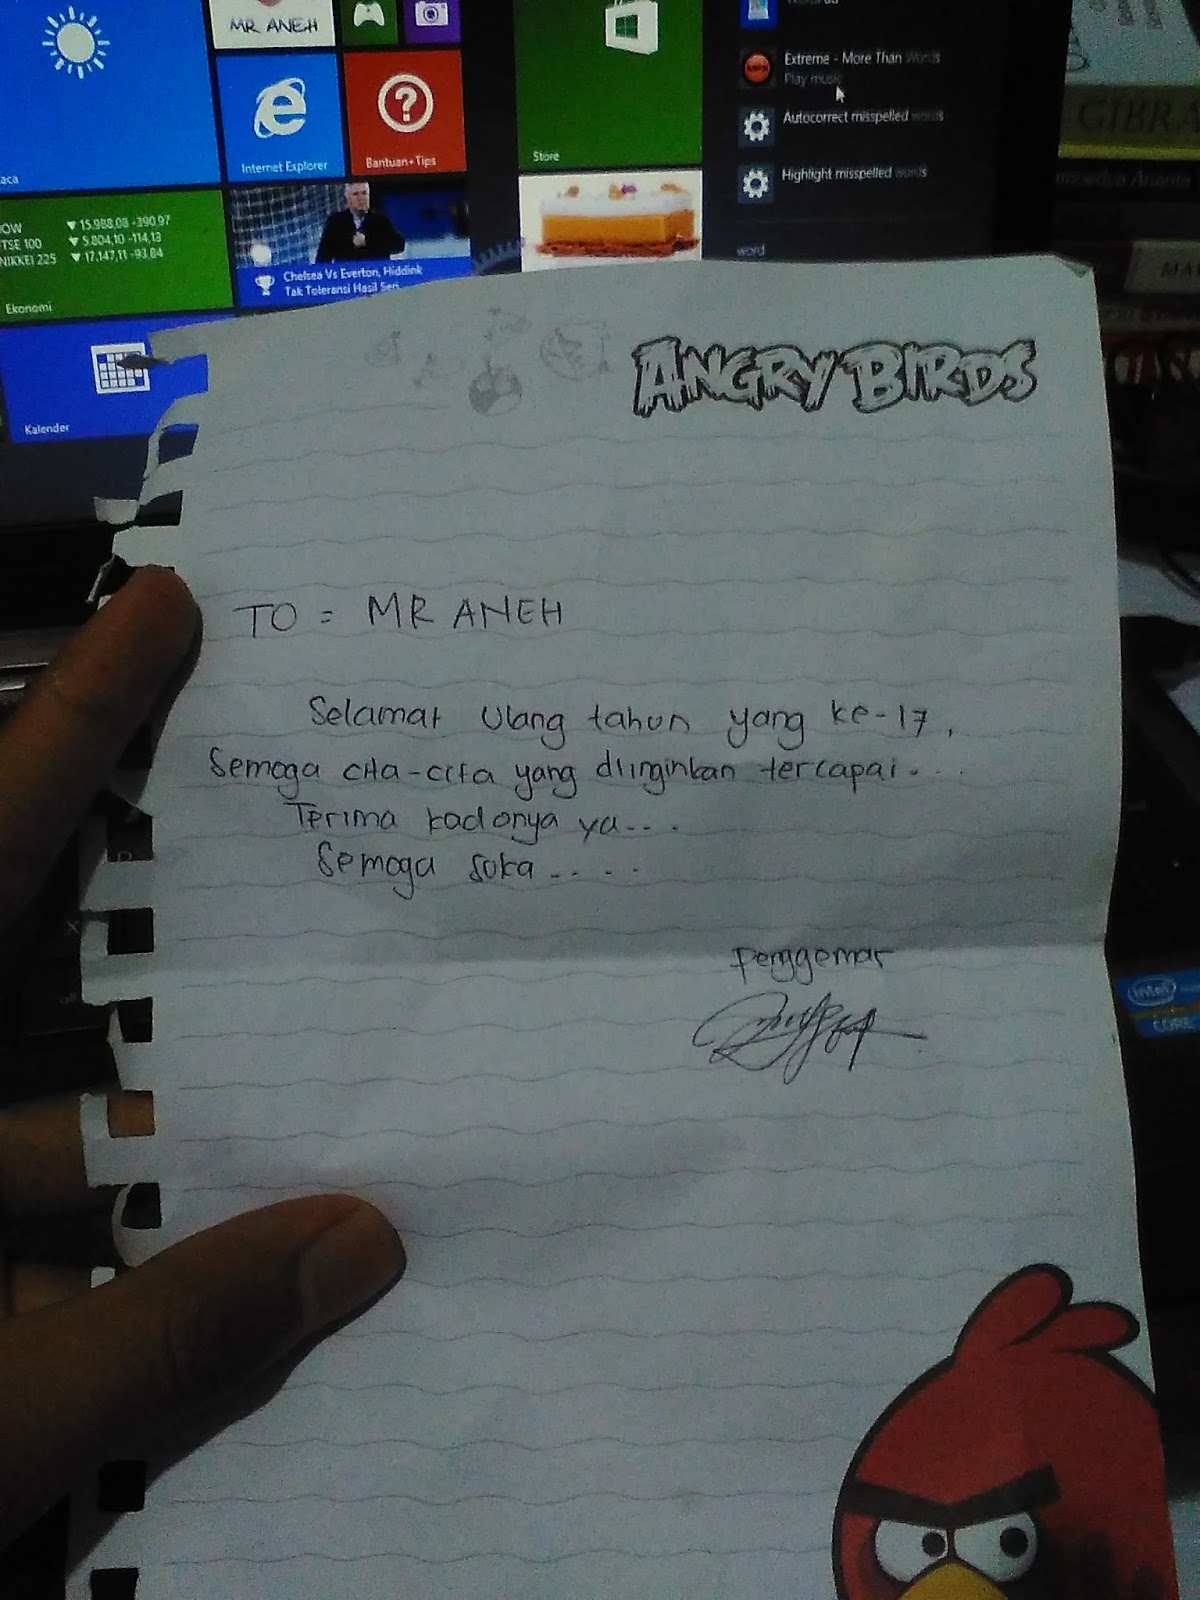 MR ANEH
Internet Explorer
Bantuan+Tips
Store
Extreme - More Than Words
Play music
Autocorrect misspelled words
Highlight misspelled words
word
GIBRA
aca
OW ▼ 15.988,08 -390,97
TSE 100 ▼ 5.804,10 -114,13
NIKKEI 225 ▼ 17.147,11 -93,84
Ekonomi
Chelsea Vs Everton, Hiddink
Tak Toleransi Hasil Seri
Kalender
ANGRY BIRDS
TO = MR ANEH
Selamat Ulang tahun yang ke-17,
Semoga cita-cita yang diinginkan tercapai...
Terima kadonya ya...
Semoga suka.....
Penggemar
intel
CORE